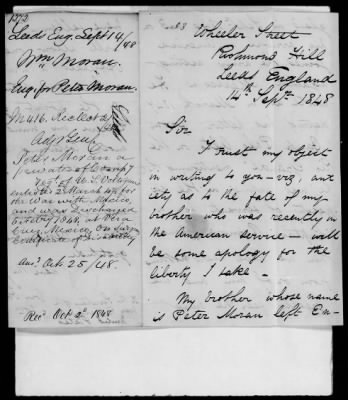 1372
Leeds Eng. Sept 14/48
Wm Moran.
Enq. for Peter Moran.
M 416. Recd Oct 21/
Adjt Genl
Peter Moran a
private of Comp. 7
enlisted 2 March 48 for
the War with Mexico,
and was discharged
1848, at Vera
Cruz Mexico, on Surg.
Certificate of Disability
Ansd Oct 25/48.
Recd Oct 2d 1848
Wheeler Street
Richmond Hill
Leeds England
14th Septr 1848
Sir
I trust my object
in writing to you - viz, anx
iety as to the fate of my
brother who was recently in
the American service - will
be some apology for the
liberty I take -
My brother whose name
is Peter Moran left En-